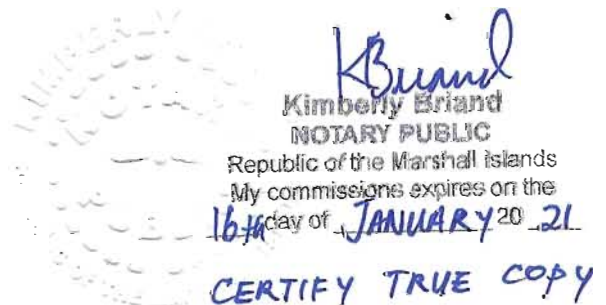 KBriand
Kimberly Briand
NOTARY PUBLIC
Republic of the Marshall Islands
My commissions expires on the
16th day of JANUARY 20 21
CERTIFY TRUE COPY